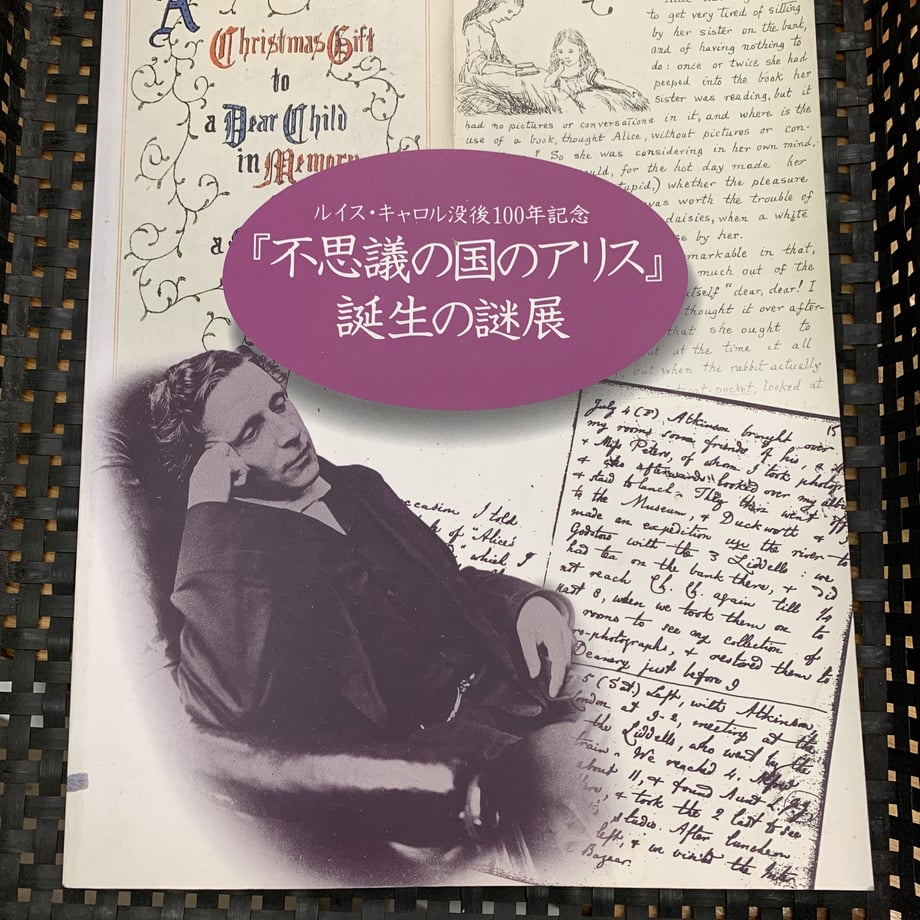 A
Christmas Gift
to
a Dear Child
in Memory
a
to get very tired of sitting
by her sister on the bank,
and of having nothing to
do: once or twice she had
peeped into the book her
sister was reading, but it
had no pictures or conversations in it, and where is the
use of a book, thought Alice, without pictures or con-
So she was considering in her own mind,
for the hot day made her
whether the pleasure
was worth the trouble of
daisies, when a white
by her.
in that,
much out of the
itself "dear, dear! I
thought it over after-
that she ought to
at the time it all
but when the rabbit actually
looked at
ルイス・キャロル没後100年記念
『不思議の国のアリス』
誕生の謎展
15
July 4 (F) Atkinson brought over
my rooms some friends of his, a
& Miss Peters, of whom I took
& who afterwards looked over my
& staid to lunch. They then went off
to the Museum, & Duckworth &
made an expedition up the river to
Godstow with the 3 Liddells: we
had tea on the bank there, & did
not reach Ch. Ch. again till 1/4
past 8, when we took them on to
rooms to see my collection of
-photographs, & restored them to
Deanery just before 9
occasion I told
of "Alice's
which I
5 (Sat) Left, with Atkinson,
London at 9-2, meeting at the
the Liddells, who went by the
train. We reached 4.
about 11, & found Aunt
& took the 2 last to see
studio. After luncheon
left, & we visited the
Bazaar.